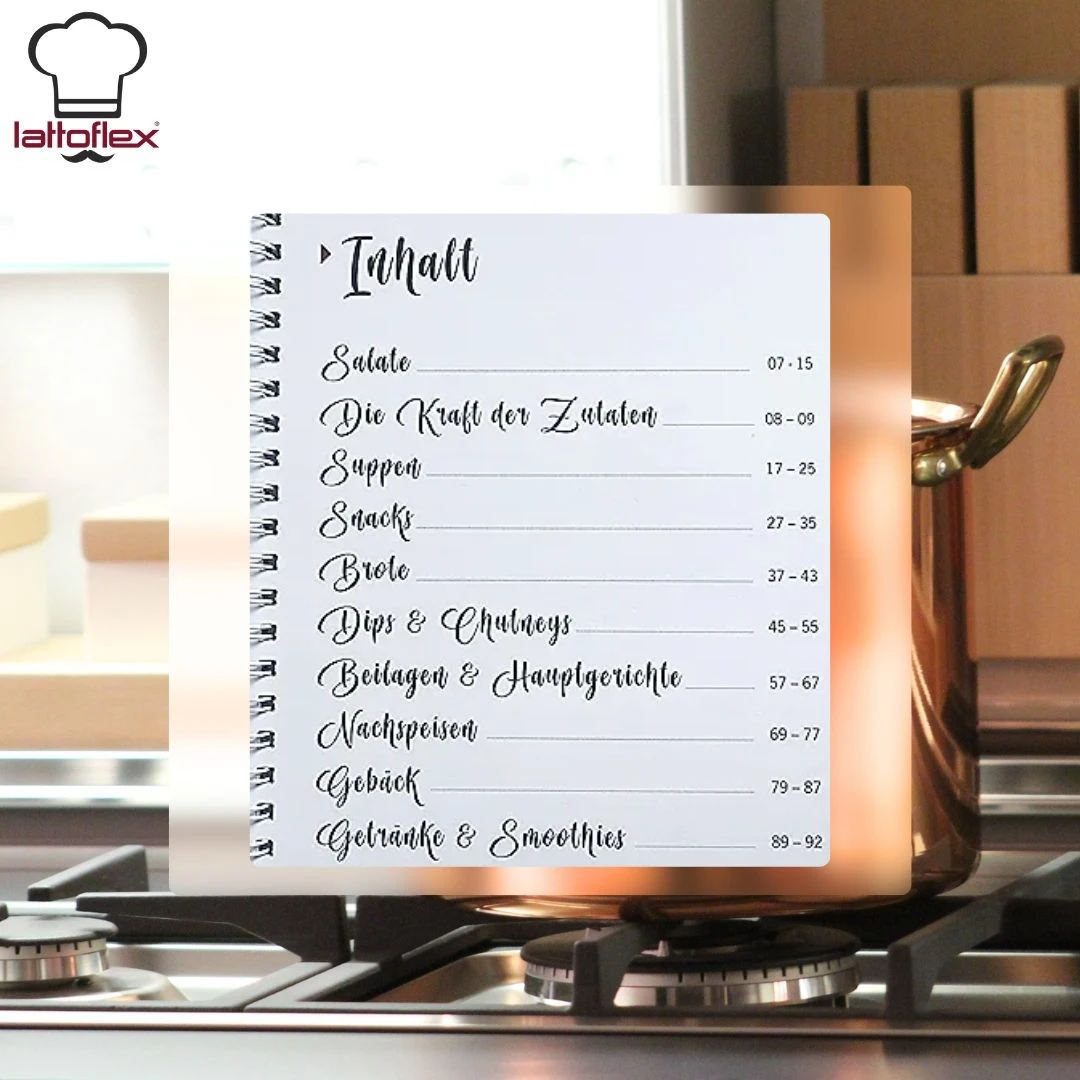 lattoflex®
Inhalt
Salate 07 - 15
Die Kraft der Zutaten 08 – 09
Suppen 17 – 25
Snacks 27 – 35
Brote 37 – 43
Dips & Chutneys 45 – 55
Beilagen & Hauptgerichte 57 – 67
Nachspeisen 69 – 77
Gebäck 79 – 87
Getränke & Smoothies 89 – 92